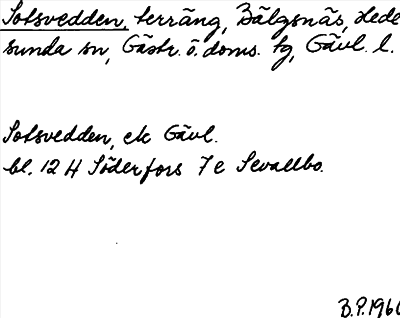 Sotsvedden, terräng, Bälgsnäs, Hede
sunda sn, Gästr. ö. doms. tg, Gävl. l.
Sotsvedden, ek Gävl.
bl. 12 H Söderfors 7 e Sevallbo.
B.P. 1966